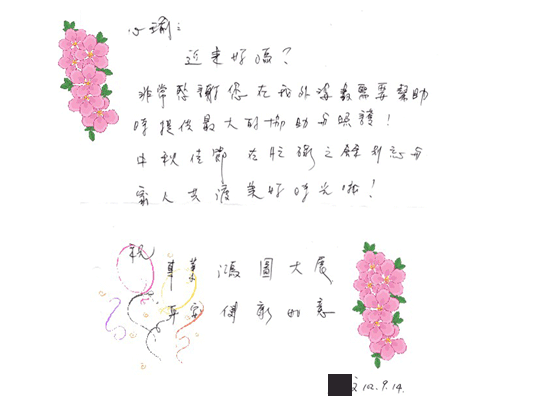 心瑚：
近來好嗎？
非常感謝您在我外婆最需要幫助
時提供最大的協助與照護！
中秋佳節 在忙碌之餘別忘與
家人共渡美好時光哦！
祝
事業 鴻圖大展
平安 健康 如意
12.9.14.